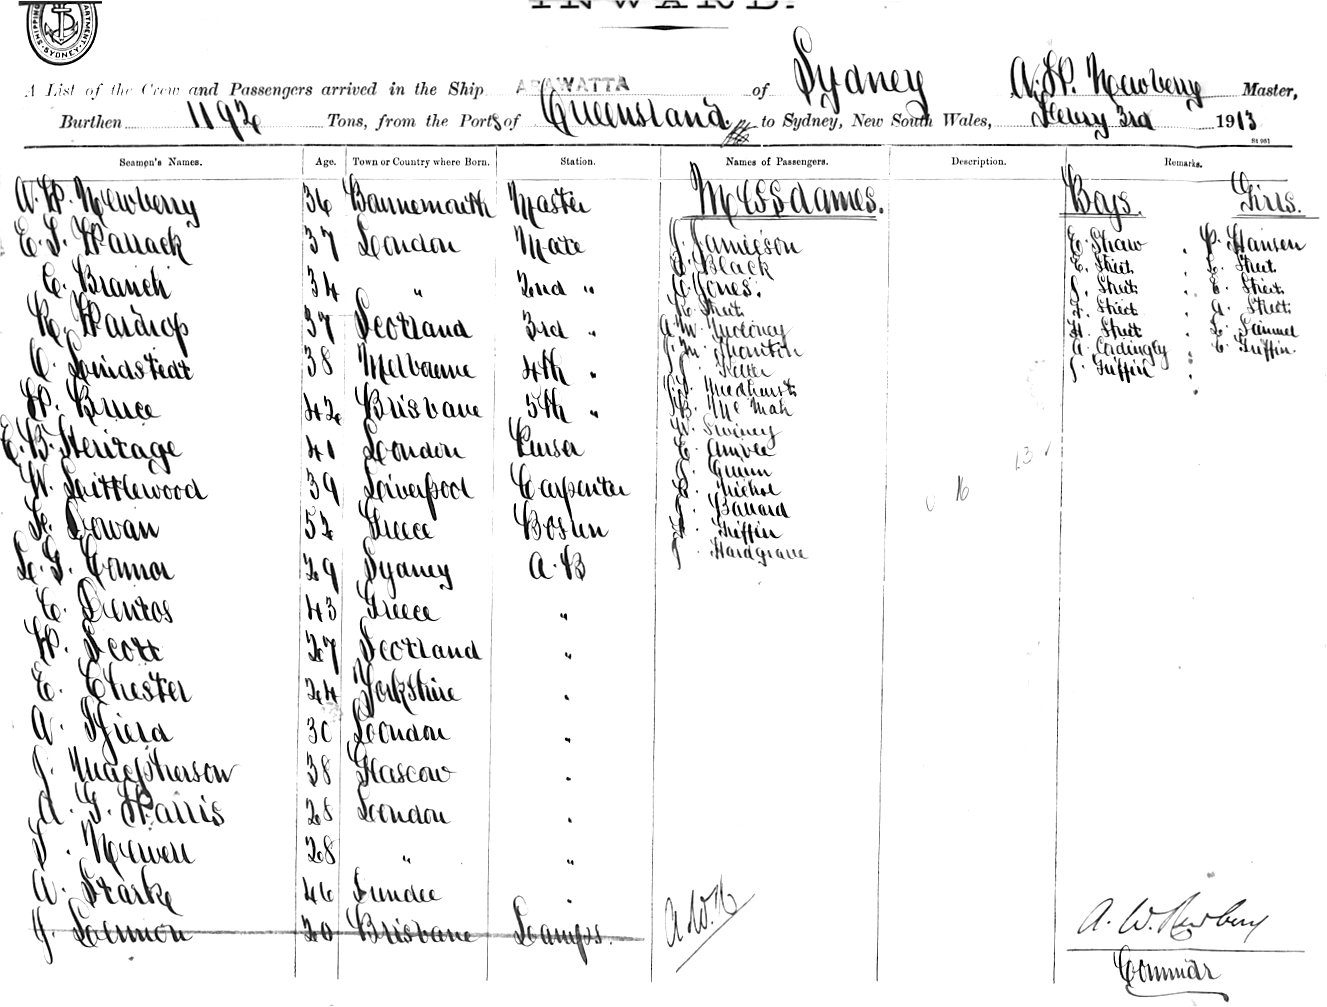 INWARD.
SHIPPING DEPARTMENT SYDNEY
A List of the Crew and Passengers arrived in the Ship ARAWATTA of Sydney A. W. Newberry Master,
Burthen 1192 Tons, from the Ports of Queensland to Sydney, New South Wales, Feby 3rd 1913
St 981
Seamen's Names. Age. Town or Country where Born. Station. Names of Passengers. Description. Remarks.
A. W. Newberry 36 Bournemouth Master
E. S. Wallack 37 London Mate
C. Branch 34 " 2nd "
R. Wardrop 37 Scotland 3rd "
C. Lindstedt 38 Melbourne 4th "
W. Bruce 42 Brisbane 5th "
E. B. Heritage 41 London Purser
W. Littlewood 39 Liverpool Carpenter
Cowan 52 Greece Bosun
Connor 29 Sydney A.B
C. Dentos 43 Greece "
W. Scott 27 Scotland "
E. Chester 24 Yorkshire "
A. Field 30 London "
J. Macpherson 38 Glascow "
A. G. Harris 28 London "
Newell 28 " "
A. Starke 46 Dundee "
J. Lennon 20 Brisbane Lamps.
Messdames.
J. Jamieson
Black
C. Jones.
Street
A. W.
J. M.
Medhurst
Mc Mah
Swiney
Gunn
Nichol
Ballard
Griffin
J. Hardgrave
A.W.N
Boys. Girls.
E. Shaw " P. Hansen
E. Street " Street
J. Street " E. Street
Street " A. Street
H. Street "
A. Cordingly " E. Griffin.
J. Griffin "
16
A. W. Newbery
Commdr